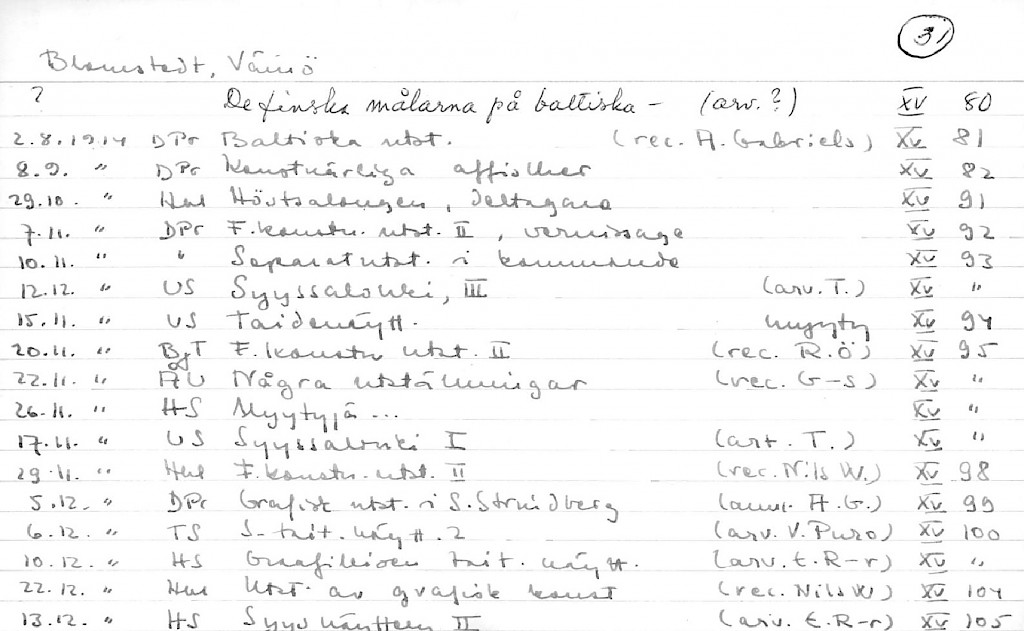 31
Blomstedt, Väinö
? De finska målarna på baltiska - (arv.?) XV 80
2.8.1914 DPr Baltiska utst. (rec. A. Gabriels) XV 81
8.9. " DPr Konstnärliga affischer XV 82
29.10. " Hbl Höstsalongen, deltagare XV 91
7.11. " DPr F. konstn. utst. II, vernissage XV 92
10.11. " " Separatutst. i kommande XV 93
12.12. " US Syyssalonki, III (arv. T.) XV "
15.11. " US Taidenäytt. myyty XV 94
20.11. " BgT F. konstn utst. II (rec. R.Ö) XV 95
22.11. " ÅU Några utställningar (rec. G-s) XV "
26.11. " HS Myytyjä ... XV "
17.11. " US Syyssalonki I (arv. T.) XV "
29.11. " Hbl F. konstn. utst. II (rec. Nils W.) XV 98
5.12. " DPr Grafisk utst. i S. Strindberg (anm. A.G.) XV 99
6.12. " TS S-tait. näytt. 2 (arv. V. Puro) XV 100
10.12. " HS Graafikkoen tait. näytt. (arv. E. R-r) XV "
22.12. " Hbl Utst. av grafisk konst (rec. Nils W) XV 104
13.12. " HS Syysnäyttely II (arv. E. R-r) XV 105